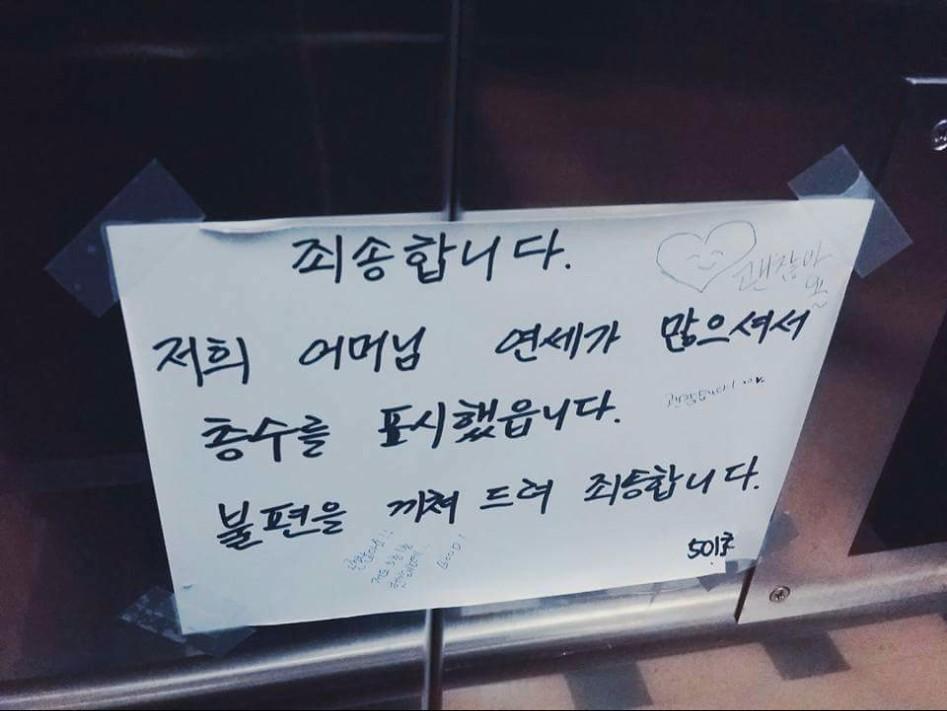 죄송합니다.
괜찮아
요~
저희 어머님 연세가 많으셔서
층수를 표시했읍니다.
괜찮습니다!
불편을 끼쳐 드려 죄송합니다.
GOOD!
501호